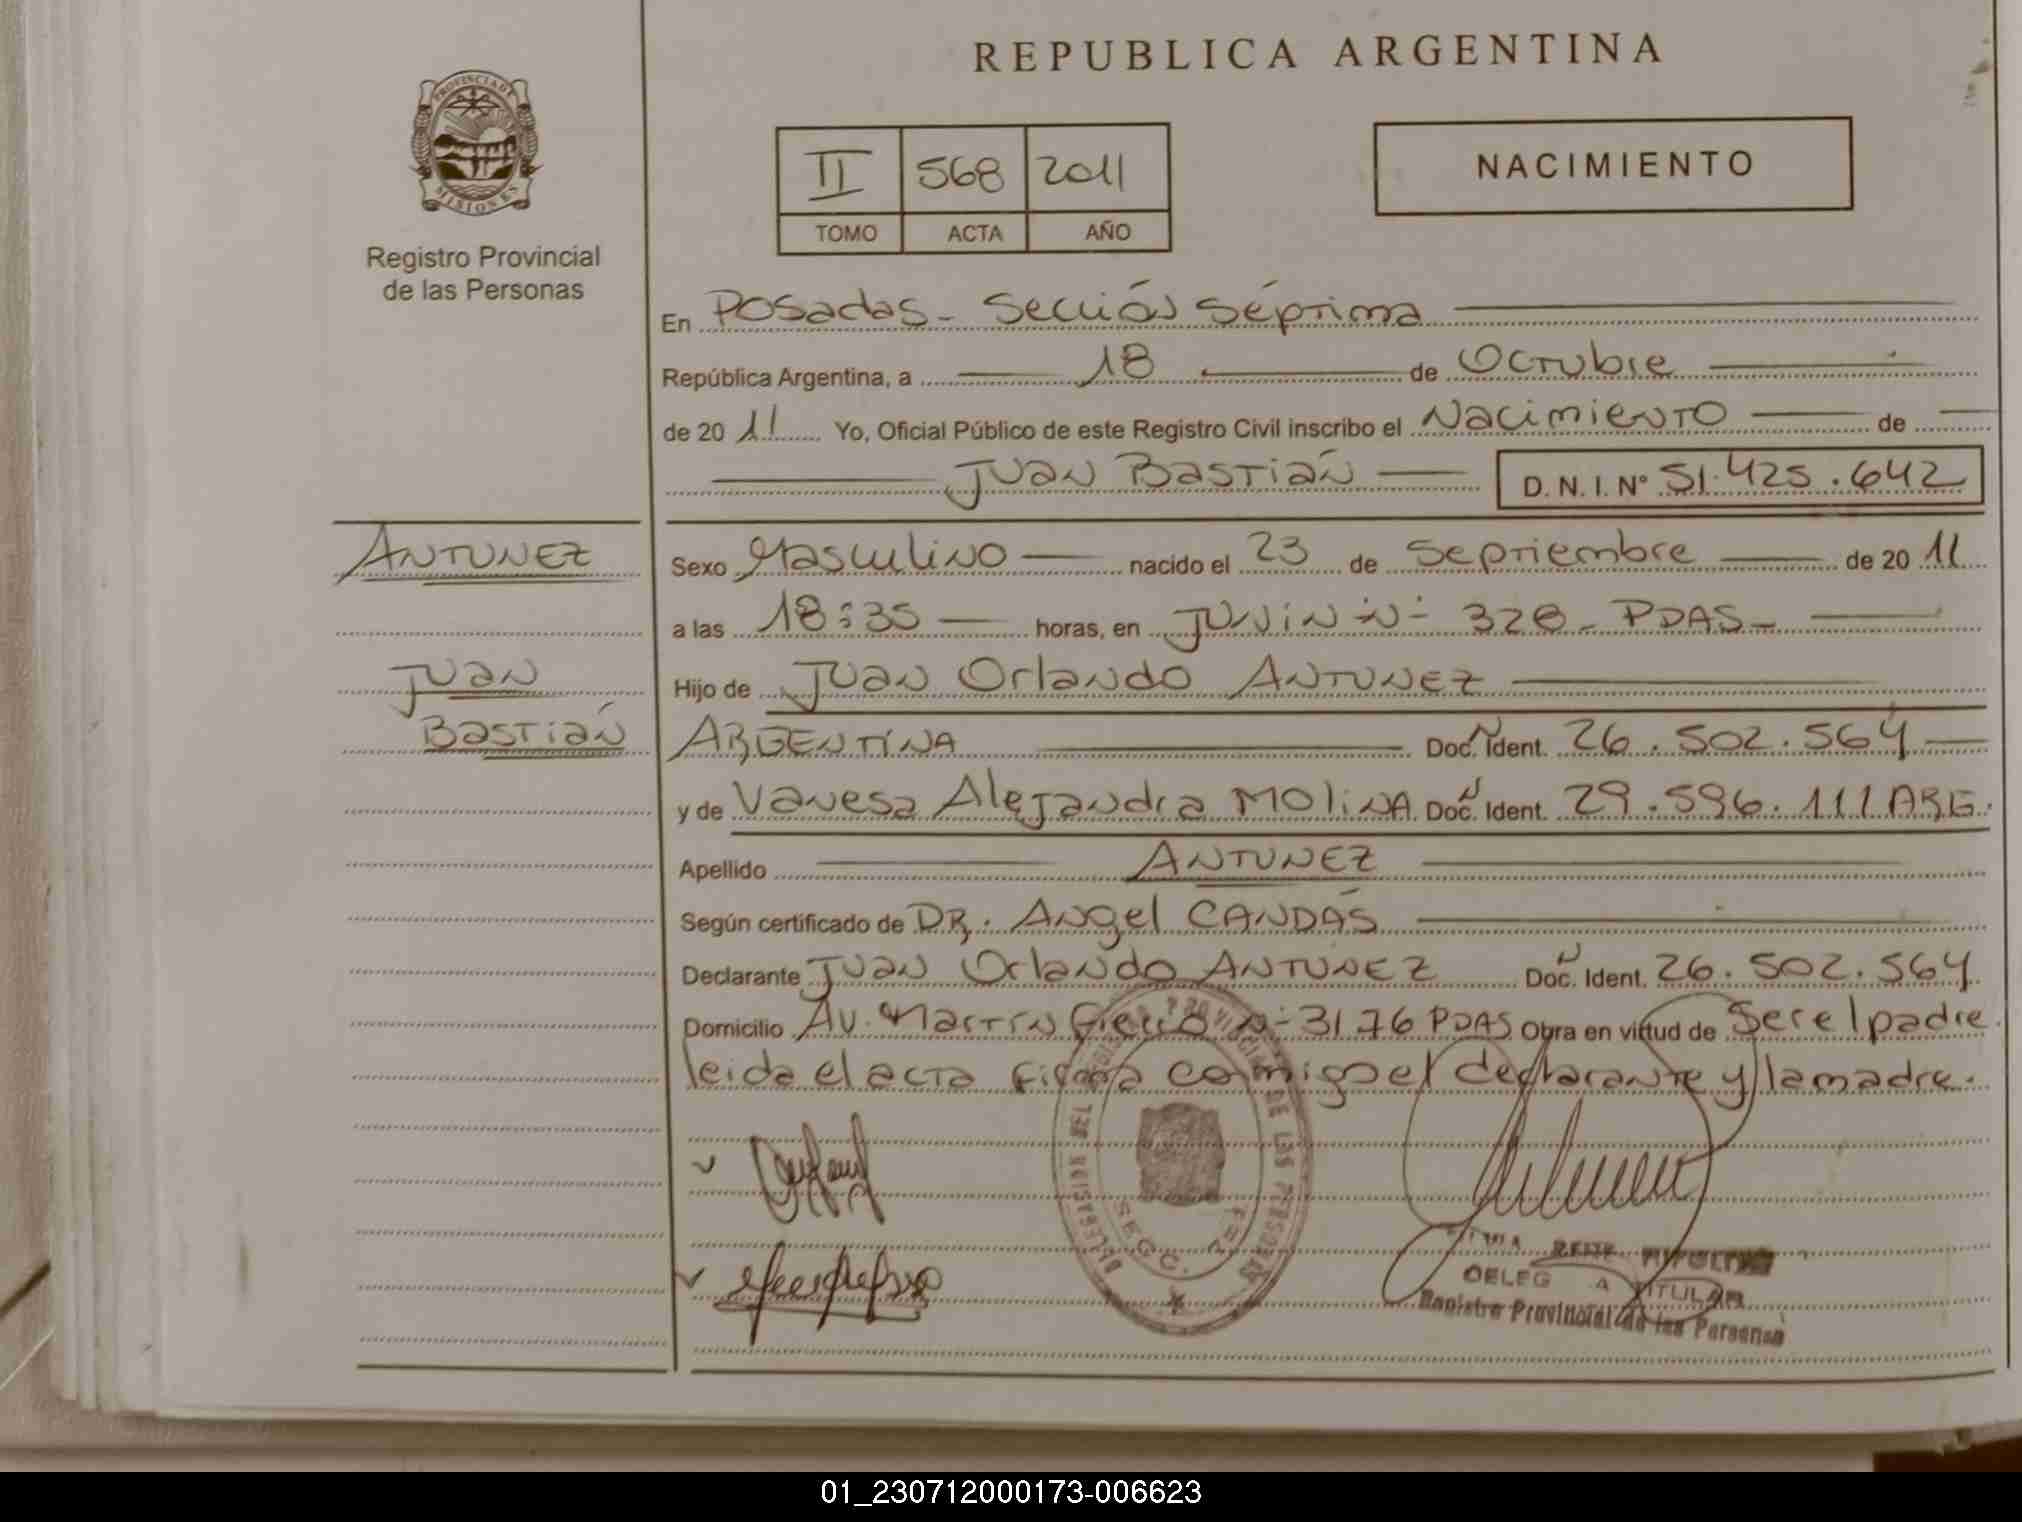 REPUBLICA ARGENTINA
PROVINCIA DE MISIONES
Registro Provincial
de las Personas
II 568 2011
TOMO ACTA AÑO
NACIMIENTO
En Posadas - Sección Séptima
República Argentina, a 18 de Octubre
de 20 11 Yo, Oficial Público de este Registro Civil inscribo el Nacimiento de
Juan Bastián D. N. I. Nº 51.425.642
ANTUNEZ
Juan
Bastián
Sexo Masculino nacido el 23 de Septiembre de 20 11
a las 18:35 horas, en Junin N- 328 - PDAS -
Hijo de Juan Orlando ANTUNEZ
ARGENTINA Doc. Ident. 26.502.564
y de Vanesa Alejandra MOLINA Doc. Ident. 29.596.111 ARG.
Apellido ANTUNEZ
Según certificado de DR. Angel CANDÁS
Declarante Juan Orlando ANTUNEZ Doc. Ident. 26.502.564
Domicilio Av. Martín Fierro N- 3176 PDAS Obra en virtud de Ser el padre
leida el acta firma conmigo el declarante y la madre.
DEL REGISTRO PROVINCIAL DE LAS PERSONAS
SECC. 7
TITULAR
Registro Provincial de las Personas
01_230712000173-006623